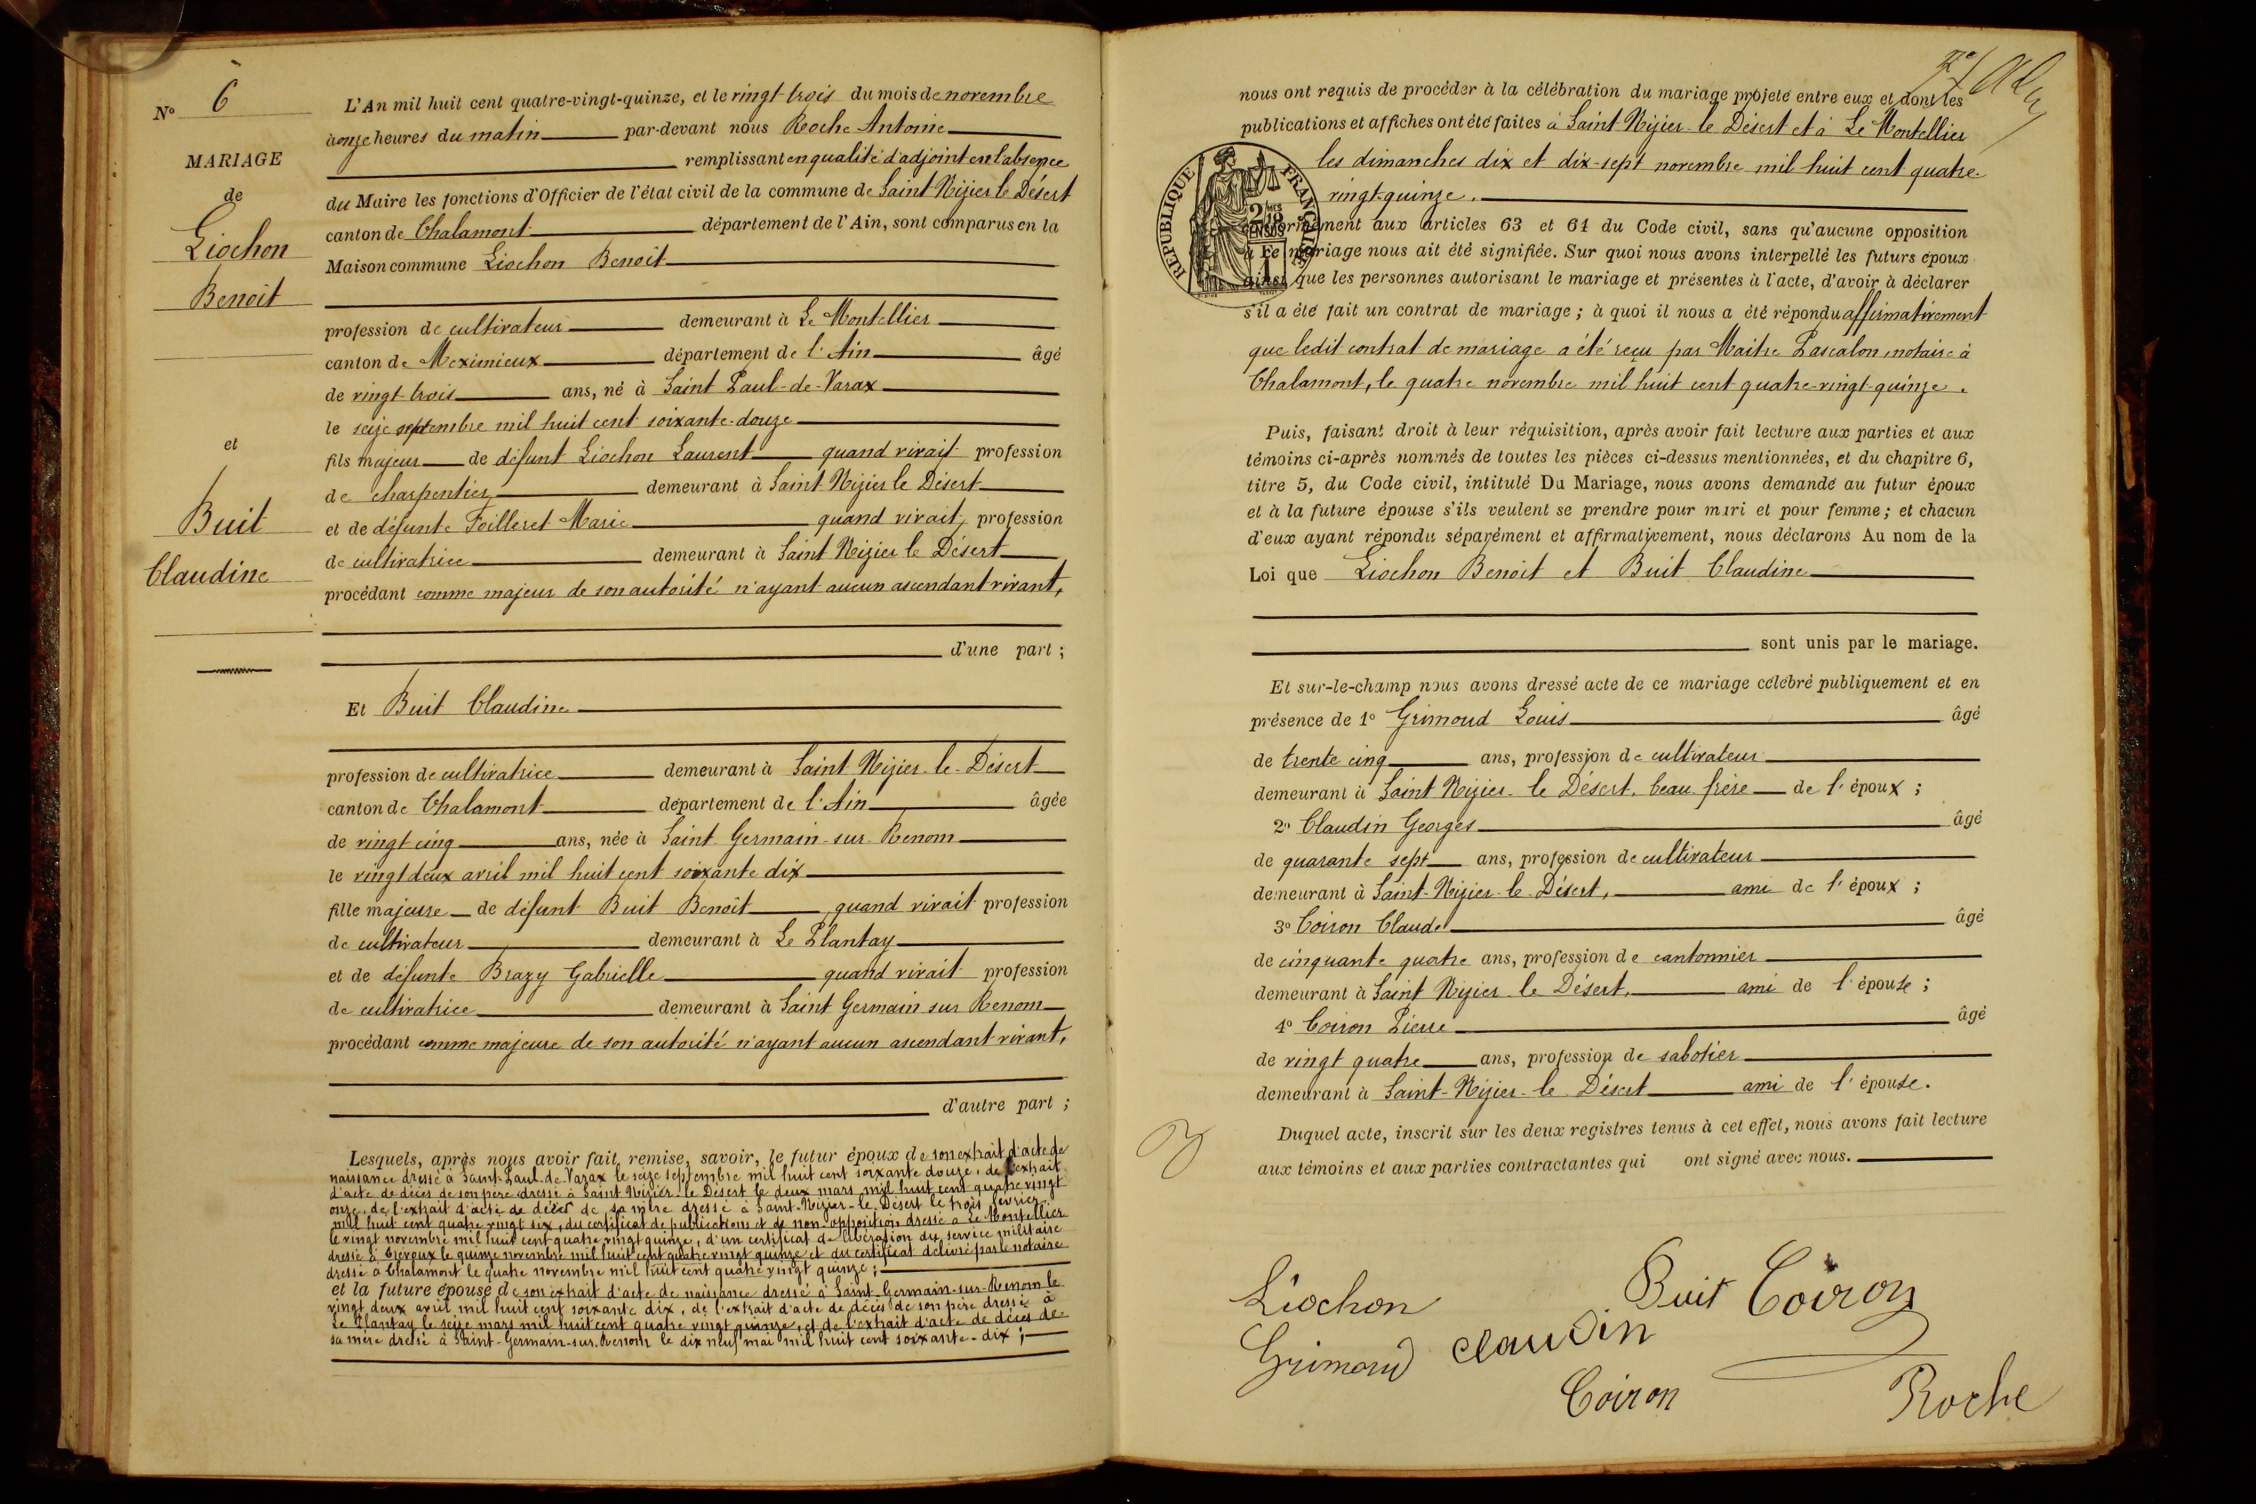 N° 6
MARIAGE
de
Liochon
Benoit
et
Buit
Claudine
L'An mil huit cent quatre-vingt-quinze, et le vingt trois du mois de novembre
à onze heures du matin par-devant nous Roche Antoine
remplissant en qualité d'adjoint en l'absence
du Maire les fonctions d'Officier de l'état civil de la commune de Saint Nizier le Désert
canton de Chalamont département de l'Ain, sont comparus en la
Maison commune Liochon Benoit
profession de cultivateur demeurant à Le Montellier
canton de Meximieux département de l'Ain âgé
de vingt-trois ans, né à Saint Paul-de-Varax
le seize septembre mil huit cent soixante-douze
fils majeur de défunt Liochon Laurent quand vivait profession
de charpentier demeurant à Saint-Nizier le Désert
et de défunte Feilleret Marie quand vivait, profession
de cultivatrice demeurant à Saint Nizier le Désert
procédant comme majeur de son autorité n'ayant aucun ascendant vivant,
d'une part ;
Et Buit Claudine
profession de cultivatrice demeurant à Saint Nizier-le-Désert
canton de Chalamont département de l'Ain âgée
de vingt cinq ans, née à Saint Germain-sur-Renom
le vingt deux avril mil huit cent soixante dix
fille majeure de défunt Buit Benoît quand vivait profession
de cultivateur demeurant à Le Plantay
et de défunte Brazy Gabrielle quand vivait profession
de cultivatrice demeurant à Saint Germain sur Renom
procédant comme majeure de son autorité n'ayant aucun ascendant vivant,
d'autre part ;
Lesquels, après nous avoir fait remise, savoir, le futur époux de son extrait d'acte de
naissance dressé à Saint-Paul-de-Varax le seize septembre mil huit cent soixante douze, de l'extrait
d'acte de décès de son père dressé à Saint Nizier-le-Désert le deux mars mil huit cent quatre vingt
onze, de l'extrait d'acte de décès de sa mère dressé à Saint-Nizier-le-Désert le trois février
mil huit cent quatre vingt six, du certificat de publications et de non-opposition dressé à Le Montellier
le vingt novembre mil huit cent quatre vingt quinze, d'un certificat de libération du service militaire
dressé à Trévoux le quinze novembre mil huit cent quatre vingt quinze et du certificat délivré par le notaire
dressé à Chalamont le quatre novembre mil huit cent quatre vingt quinze ;
et la future épouse de son extrait d'acte de naissance dressé à Saint-Germain-sur-Renom le
vingt deux avril mil huit cent soixante dix, de l'extrait d'acte de décès de son père dressé à
Le Plantay le seize mars mil huit cent quatre vingt quinze, et de l'extrait d'acte de décès de
sa mère dressé à Saint-Germain-sur-Renom le dix neuf mai mil huit cent soixante-dix ;
nous ont requis de procéder à la célébration du mariage projeté entre eux et dont les
publications et affiches ont été faites à Saint-Nizier-le Désert et à Le Montellier
les dimanches dix et dix-sept novembre mil huit cent quatre-
vingt-quinze.
RÉPUBLIQUE FRANÇAISE
conformément aux articles 63 et 64 du Code civil, sans qu'aucune opposition
à ce mariage nous ait été signifiée. Sur quoi nous avons interpellé les futurs époux
ainsi que les personnes autorisant le mariage et présentes à l'acte, d'avoir à déclarer
s'il a été fait un contrat de mariage ; à quoi il nous a été répondu affirmativement
que ledit contrat de mariage a été reçu par Maitre Pascalon, notaire à
Chalamont, le quatre novembre mil huit cent quatre-vingt-quinze.
Puis, faisant droit à leur réquisition, après avoir fait lecture aux parties et aux
témoins ci-après nommés de toutes les pièces ci-dessus mentionnées, et du chapitre 6,
titre 5, du Code civil, intitulé Du Mariage, nous avons demandé au futur époux
et à la future épouse s'ils veulent se prendre pour mari et pour femme ; et chacun
d'eux ayant répondu séparément et affirmativement, nous déclarons Au nom de la
Loi que Liochon Benoit et Buit Claudine
sont unis par le mariage.
Et sur-le-champ nous avons dressé acte de ce mariage célébré publiquement et en
présence de 1° Grimoud Louis âgé
de trente cinq ans, profession de cultivateur
demeurant à Saint Nizier-le Désert, beau frère de l'époux ;
2° Claudin Georges âgé
de quarante sept ans, profession de cultivateur
demeurant à Saint-Nizier-le Désert, ami de l'époux ;
3° Coiron Claude âgé
de cinquante quatre ans, profession de cantonnier
demeurant à Saint Nizier-le Désert, ami de l'épouse ;
4° Coiron Pierre âgé
de vingt quatre ans, profession de sabotier
demeurant à Saint-Nizier-le Désert ami de l'épouse.
Duquel acte, inscrit sur les deux registres tenus à cet effet, nous avons fait lecture
aux témoins et aux parties contractantes qui ont signé avec nous.
Liochon Buit Coiron
Grimoud Claudin
Coiron Roche